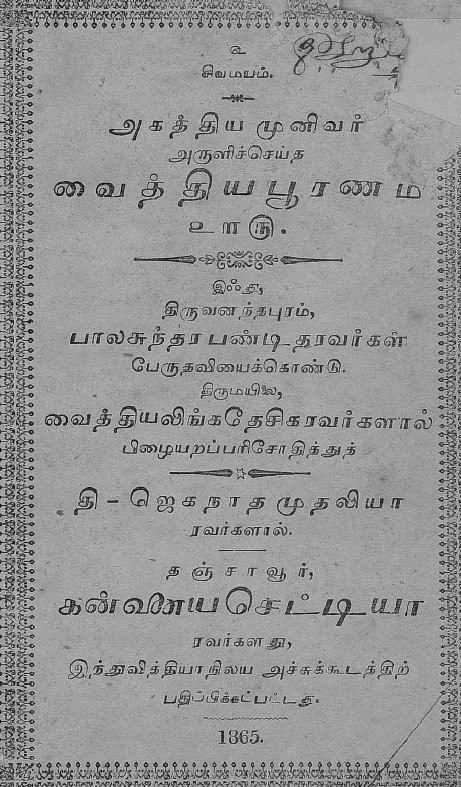 உ
சிவமயம்.
அகத்தியமுனிவர்
அருளிச்செய்த
வைத்தியபூரணம்
உளரு.
இஃது,
திருவனந்தபுரம்,
பாலசுந்தரபண்டிதரவர்கள்
பேருதவியைக்கொண்டு.
திருமயிலை,
வைத்தியலிங்கதேசிகரவர்களால்
பிழையறப்பரிசோதித்துத்
தி - ஜெகநாதமுதலியா
ரவர்களால்.
தஞ்சாவூர்,
கன்னையசெட்டியா
ரவர்களது,
இந்துவித்தியாநிலய அச்சுக்கூடத்திற்
பதிப்பிக்கட்பட்டது.
1865.